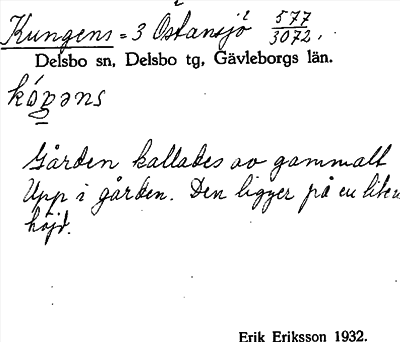 Kungens = 3 Östansjö 577/3072.
Delsbo sn, Delsbo tg, Gävleborgs län.
Gården kallades av gammalt
Upp i gården. Den ligger på en liten
höjd.
Erik Eriksson 1932.